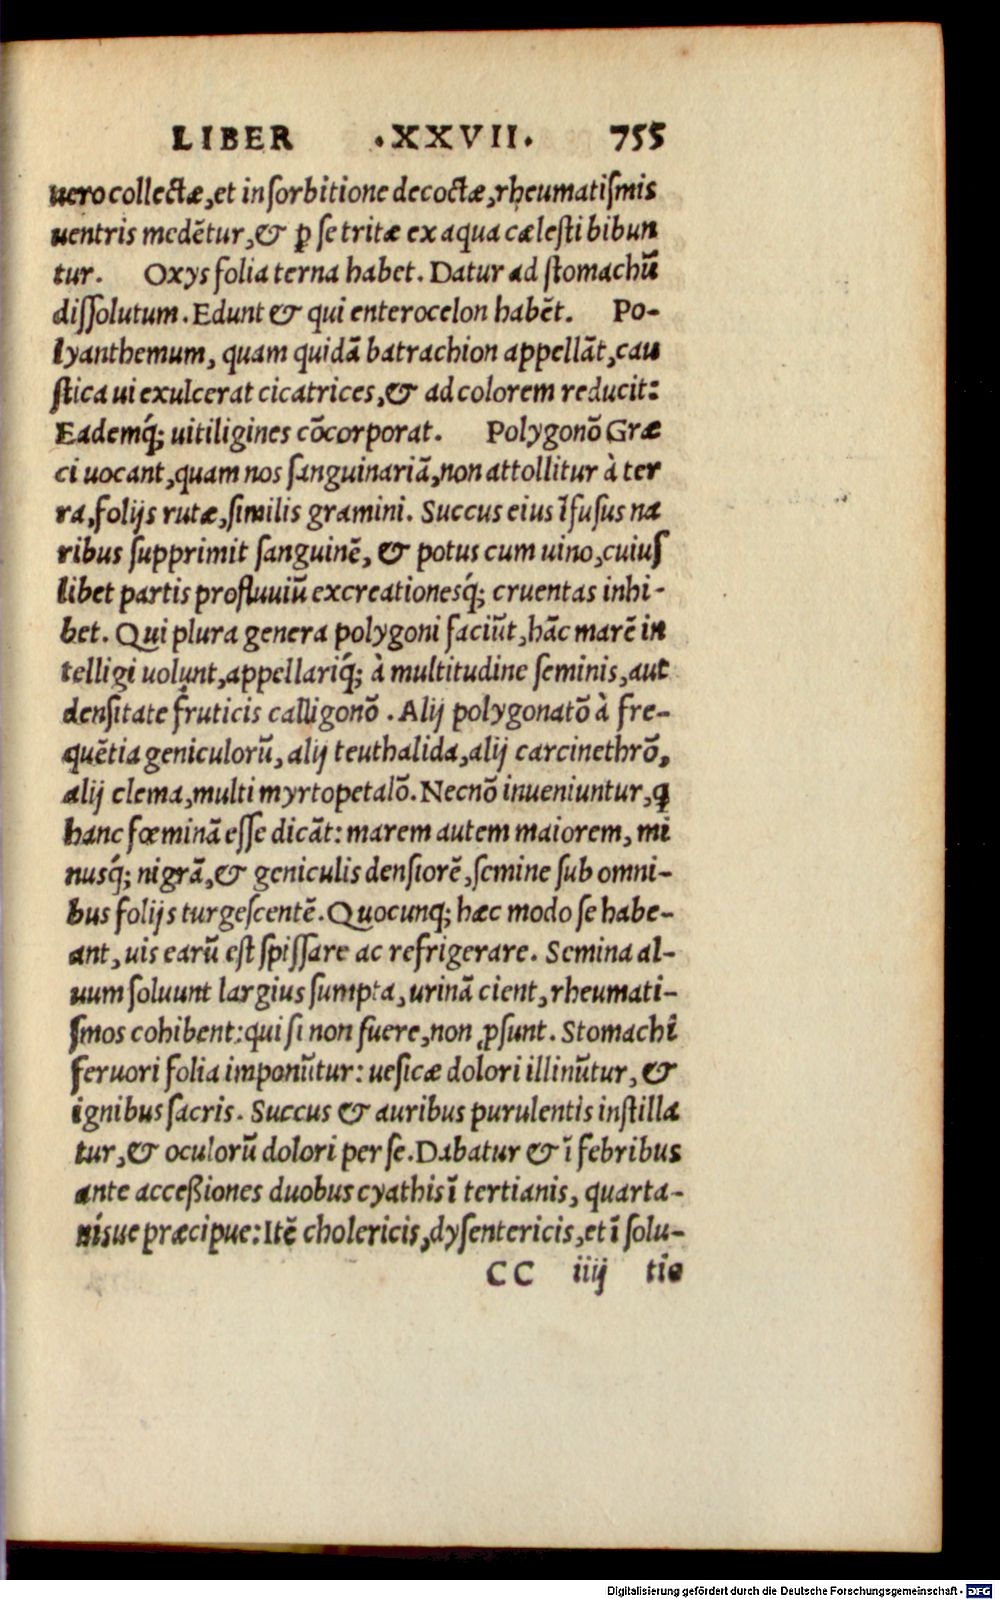 LIBER .XXVII. 755
uero collectæ, et in ſorbitione decoctæ, rheumatiſmis
uentris medẽtur, & ꝑ ſe tritæ ex aqua cæleſti bibun
tur. Oxys folia terna habet. Datur ad ſtomachũ
diſſolutum. Edunt & qui enterocelon habẽt. Po-
lyanthemum, quam quidã batrachion appellãt, cau
ſtica ui exulcerat cicatrices, & ad colorem reducit:
Eademq́; uitiligines cõcorporat. Polygonõ Græ
ci uocant, quam nos ſanguinariã, non attollitur à ter
ra, folijs rutæ, ſimilis gramini. Succus eius ĩfuſus na
ribus ſupprimit ſanguinẽ, & potus cum uino, cuiuſ
libet partis profluuiũ excreationesq́; cruentas inhi-
bet. Qui plura genera polygoni faciũt, hãc marẽ in
telligi uolunt, appellariq́; à multitudine ſeminis, aut
denſitate fruticis calligonõ. Alij polygonatõ à fre-
quẽtia geniculorũ, alij teuthalida, alij carcinethrõ,
alij clema, multi myrtopetalõ. Necnõ inueniuntur, ꝗ
hanc fœminã eſſe dicãt: marem autem maiorem, mi
nusq́; nigrã, & geniculis denſiorẽ, ſemine ſub omni-
bus folijs turgeſcentẽ. Quocunq; hæc modo ſe habe-
ant, uis earũ eſt ſpiſſare ac refrigerare. Semina al-
uum ſoluunt largius ſumpta, urinã cient, rheumati-
ſmos cohibent: qui ſi non fuere, non ꝓſunt. Stomachĩ
feruori folia imponũtur: ueſicæ dolori illinũtur, &
ignibus ſacris. Succus & auribus purulentis inſtilla
tur, & oculorũ dolori per ſe. Dabatur & ĩ febribus
ante acceßiones duobus cyathis ĩ tertianis, quarta-
niſue præcipue: Itẽ cholericis, dyſentericis, et ĩ ſolu-
CC iiij tio
Digitalisierung gefördert durch die Deutsche Forschungsgemeinschaft - DFG